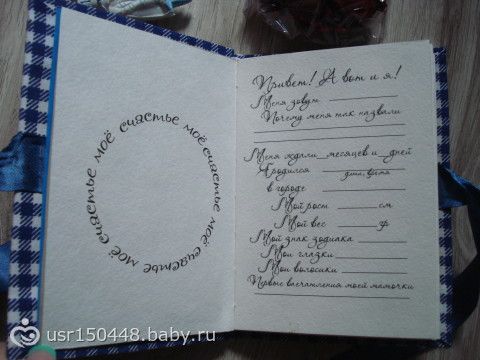 моё счастье моё счастье моё счастье моё счастье
Привет! А вот и я!
Меня зовут ____________
Почему меня так назвали
____________
____________
Меня ждали __ месяцев и __ дней
Я родился ____________
дата, время
в городе ____________
Мой рост ______ см
Мой вес ______ гр
Мой знак зодиака ________
Мои глазки ________
Мои волосики ________
Первые впечатления моей мамочки
____________
usr150448.baby.ru